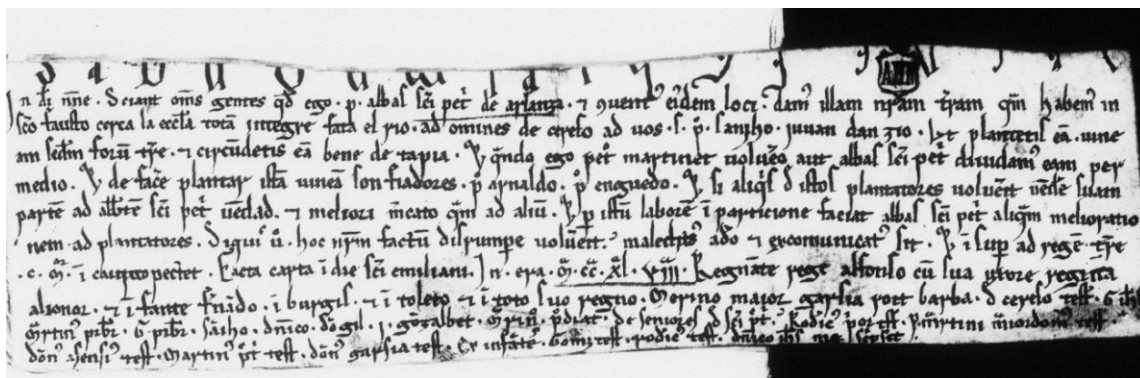 In dei nne. Sciant oms gentes qd ego. p. abbas sci pet de arlanza. & 9uent eidem loci. dam illam nram tram qm habem in
sco fausto cerca la eccla tota integre fata el rio. ad omines de cereso ad uos. s. p. sanzho. iuuan dan zio. Vt plantetis ea. uine
am sedm foru tre. & circudetis ea bene de tapia. & qndo ego pet martinet uoluero aut abbas sci pet diuidam eam per
medio. & de face plantar ista uinea son fiadores. p arnaldo. p enguedo. & si aliqs d istos plantatores uoluerit uede suam
parte ad abbte sci pet uedad. & meliori mcato qm ad aliu. & p istu labore i particione faciat abbas sci pet aliqm melioratio
nem ad plantatores. Siqui u. hoc nrm factu disrumpe uoluerit. maledictus ado & excomunicat sit. & i sup ad rege tre
. c. mr i cauto pectet. Facta carta i die sci emiliani. In. era. M. CC. XL. VIII. Regnate rege alfonso cu sua uxore regina
alionor. & i fante fnado. i burgis. & i toleto & i toto suo regno. Merino maior garsia rott barba. d cereso test.
martin pibr. G. pibr. sanho. dnico. dogil. J. gozalbet. de seniores d sci pet. Rodic por tst. P. martini test
don asensi test. Martin pet test. don garsia test. Er infate. Gomi test. rodic test. dnico ihs me sepset.